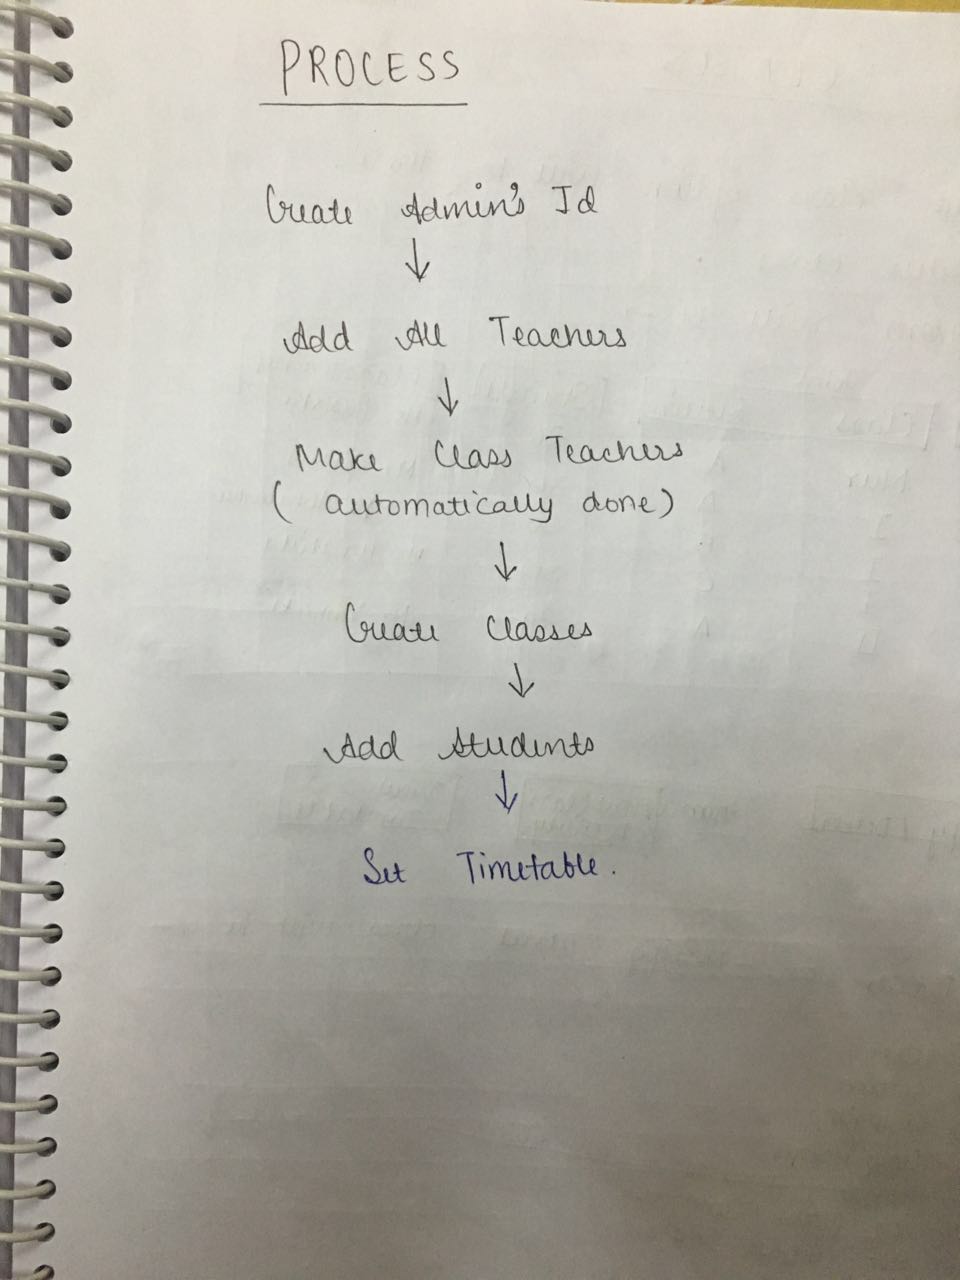 PROCESS
Create Admin's Id
↓
Add All Teachers
↓
Make Class Teachers
( automatically done)
↓
Create Classes
↓
Add Students
↓
Set Timetable.